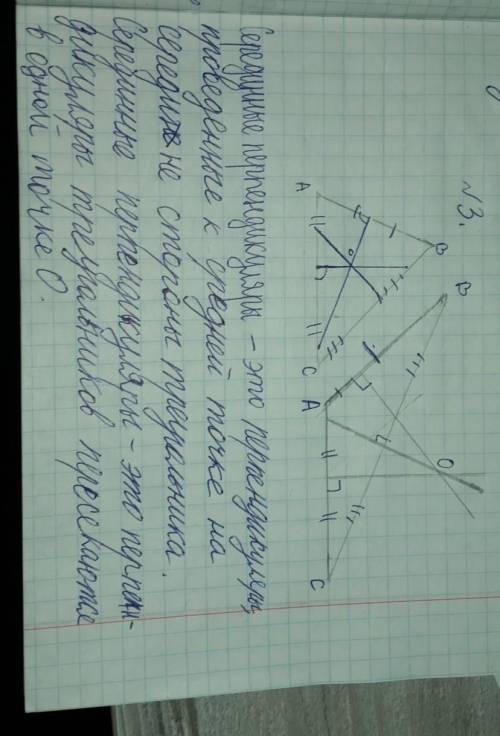 №3.
B
B
A
C
A
O
O
C
Серединные перпендикуляры – это перпендикуляры,
проведенные к средней точке на
середине стороны треугольника.
Серединные перпендикуляры – это перпен-
дикуляры треугольников пересекаются
в одной точке О.